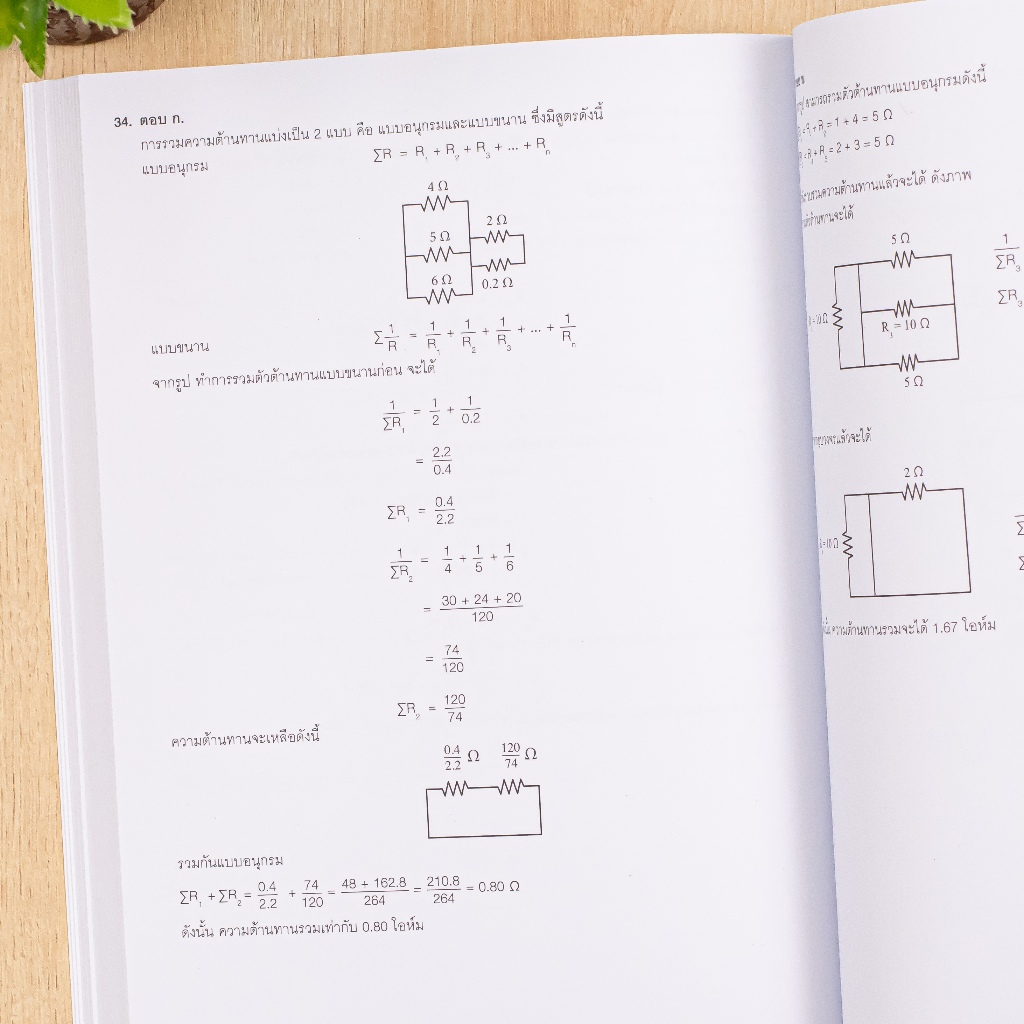 34. ตอบ ก.
การรวมความต้านทานแบ่งเป็น 2 แบบ คือ แบบอนุกรมและแบบขนาน ซึ่งมีสูตรดังนี้
แบบอนุกรม ΣR = R₁ + R₂ + R₃ + ... + Rₙ
4 Ω
5 Ω 2 Ω
6 Ω 0.2 Ω
แบบขนาน Σ1/R = 1/R₁ + 1/R₂ + 1/R₃ + ... + 1/Rₙ
จากรูป ทำการรวมตัวต้านทานแบบขนานก่อน จะได้
1/ΣR₁ = 1/2 + 1/0.2
= 2.2/0.4
ΣR₁ = 0.4/2.2
1/ΣR₂ = 1/4 + 1/5 + 1/6
= 30 + 24 + 20/120
= 74/120
ΣR₂ = 120/74
ความต้านทานจะเหลือดังนี้
0.4/2.2 Ω 120/74 Ω
รวมกันแบบอนุกรม
ΣR₁ + ΣR₂ = 0.4/2.2 + 74/120 = 48 + 162.8/264 = 210.8/264 = 0.80 Ω
ดังนั้น ความต้านทานรวมเท่ากับ 0.80 โอห์ม
สามารถรวมตัวต้านทานแบบอนุกรมดังนี้
= 1 + 4 = 5 Ω
= 2 + 3 = 5 Ω
รวมความต้านทานแล้วจะได้ ดังภาพ
ต้านทานจะได้
5 Ω
1/ΣR₃
ΣR₃
R₃ = 10 Ω
5 Ω
แล้วจะได้
2 Ω
ความต้านทานรวมจะได้ 1.67 โอห์ม